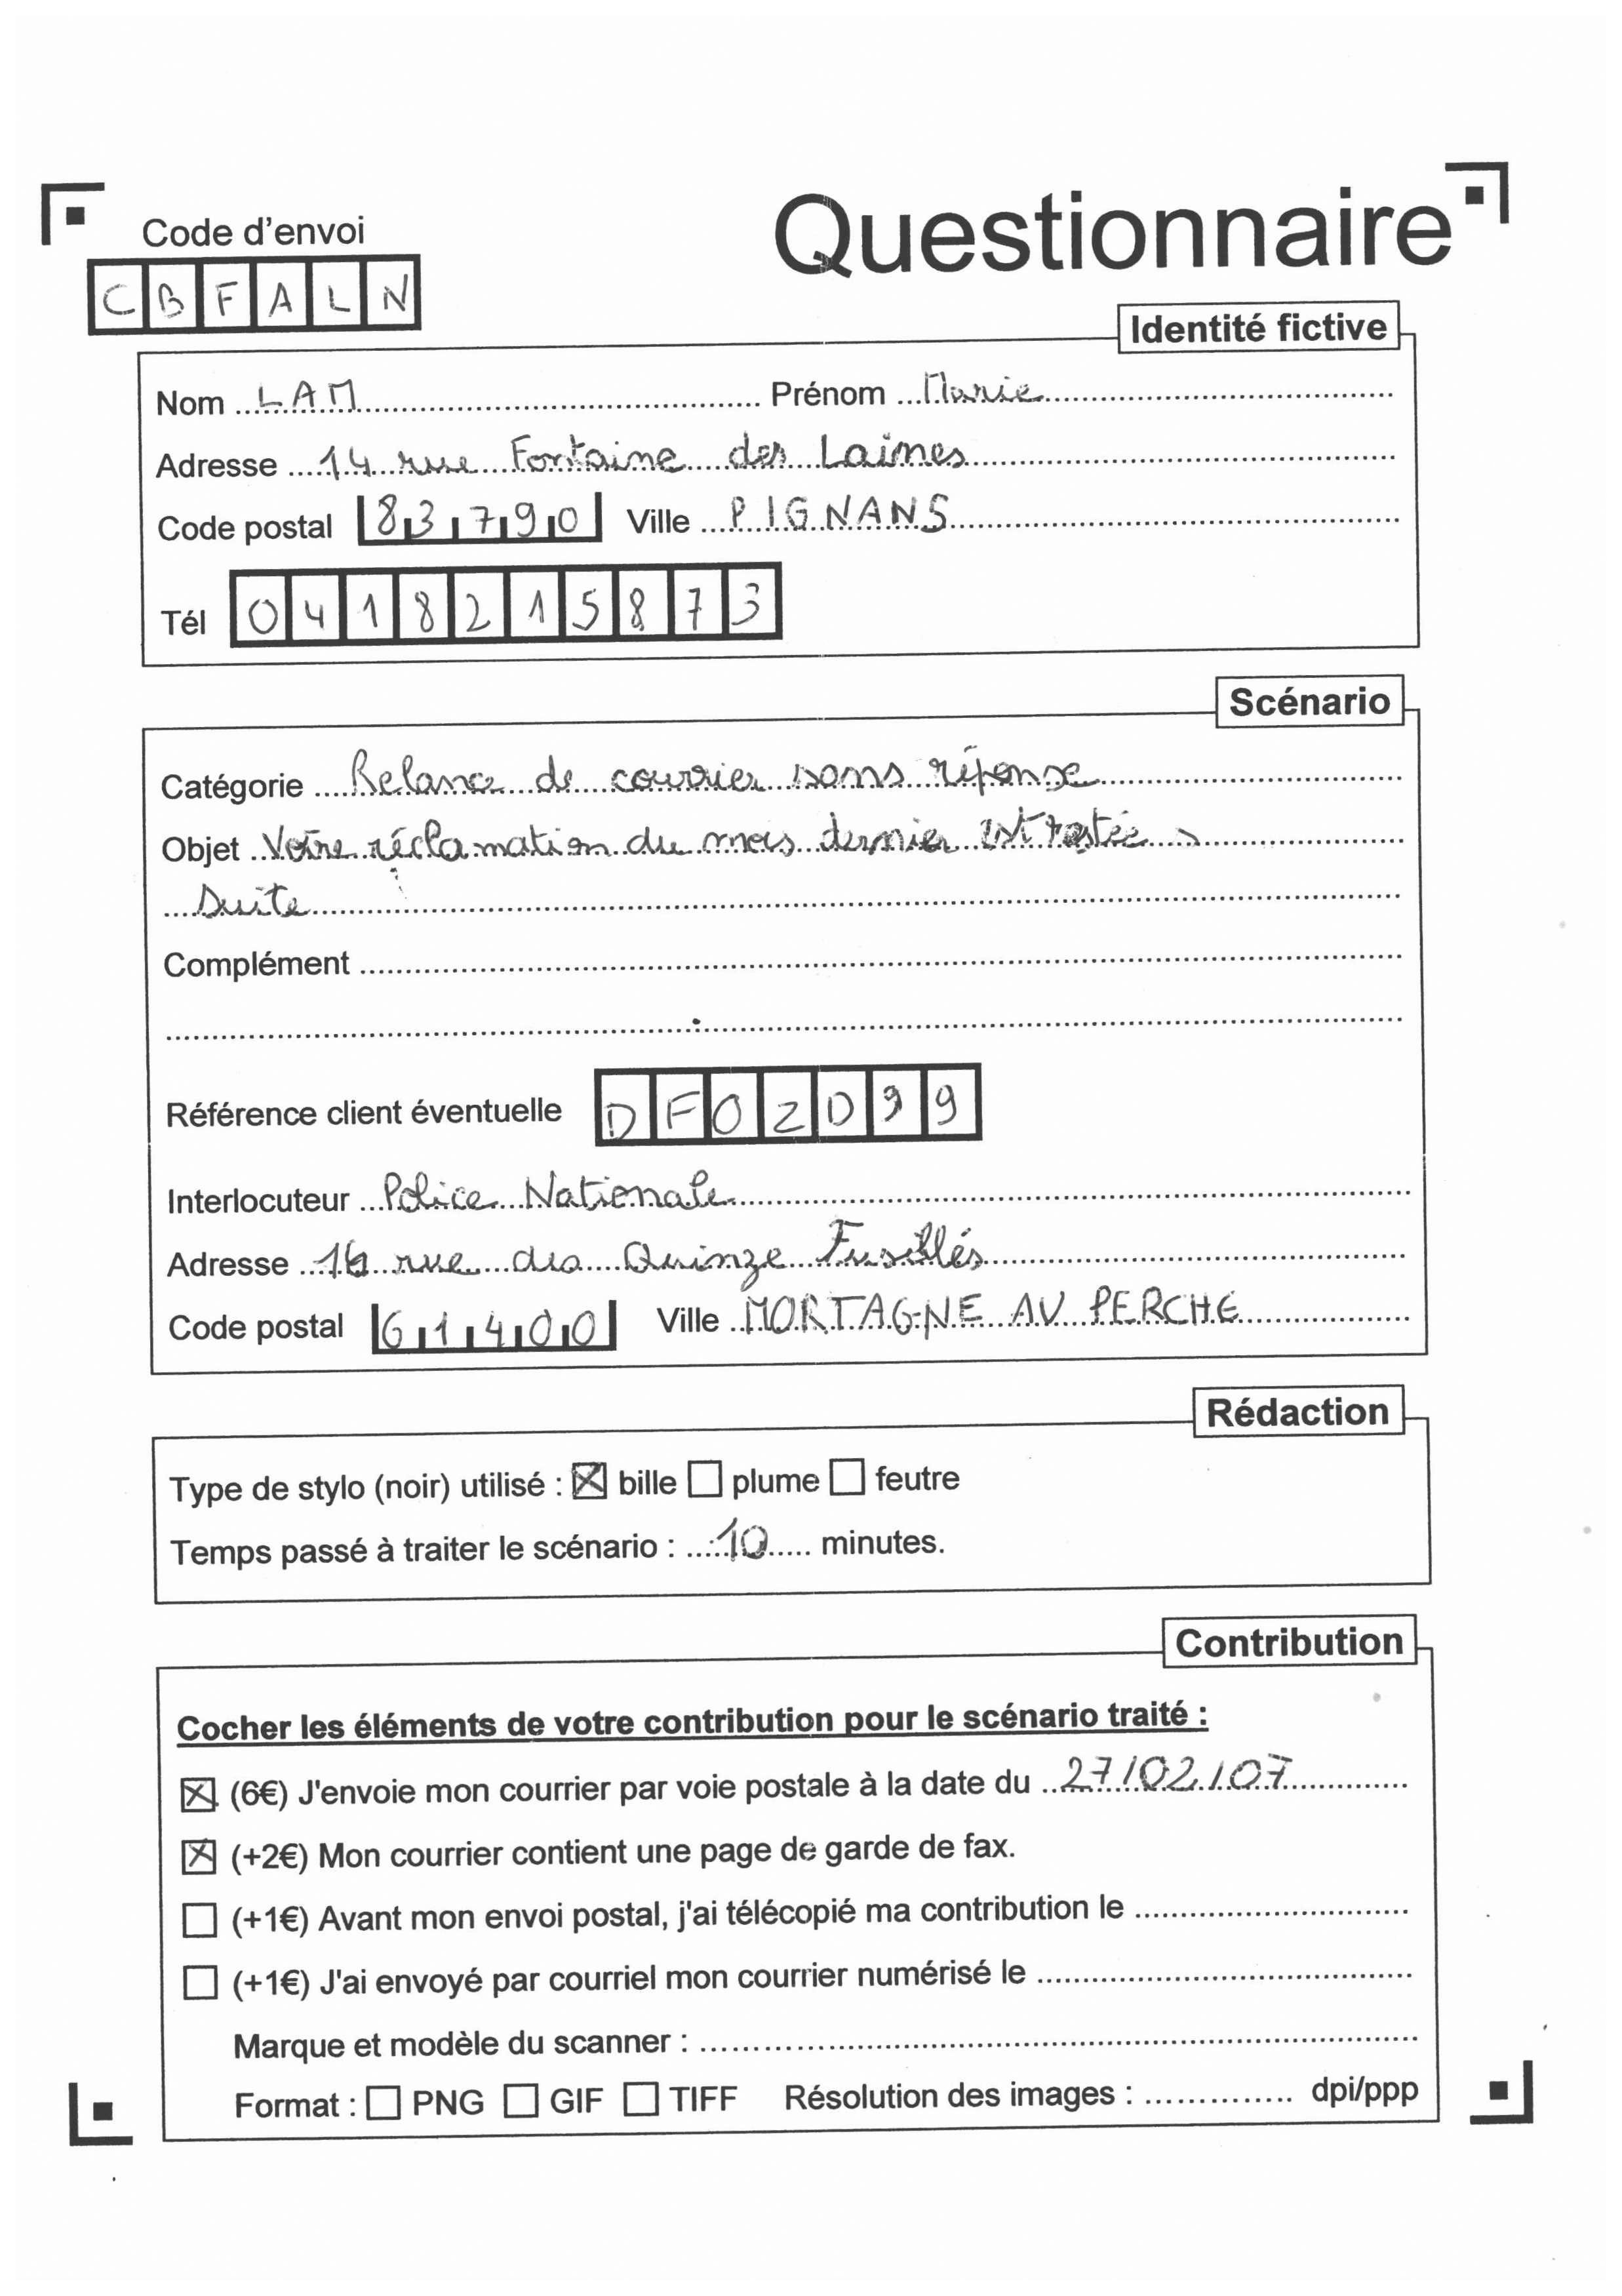 Questionnaire
Code d'envoi
CBFALN
Identité fictive
Nom LAM Prénom Marie
Adresse 14 rue Fontaine des Laimes
Code postal 83790 Ville PIGNANS
Tél 0418215873
Scénario
Catégorie Relance de courrier sans réponse
Objet Votre réclamation du mois dernier est restée s
Suite
Complément
Référence client éventuelle DFOZD99
Interlocuteur Police Nationale
Adresse 16 rue des Quinze Fusillés
Code postal 61400 Ville MORTAGNE AU PERCHE
Rédaction
Type de stylo (noir) utilisé : ☒ bille ☐ plume ☐ feutre
Temps passé à traiter le scénario : 10 minutes.
Contribution
Cocher les éléments de votre contribution pour le scénario traité :
☒ (6€) J'envoie mon courrier par voie postale à la date du 27/02/07
☒ (+2€) Mon courrier contient une page de garde de fax.
☐ (+1€) Avant mon envoi postal, j'ai télécopié ma contribution le
☐ (+1€) J'ai envoyé par courriel mon courrier numérisé le
Marque et modèle du scanner :
Format : ☐ PNG ☐ GIF ☐ TIFF Résolution des images : dpi/ppp